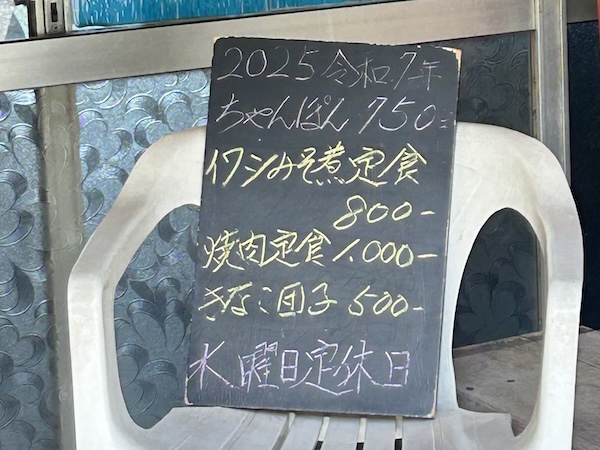 2025令和7年
ちゃんぽん 750-
イワシみそ煮定食
800-
焼肉定食 1.000-
きなこ団子 500-
水曜日定休日